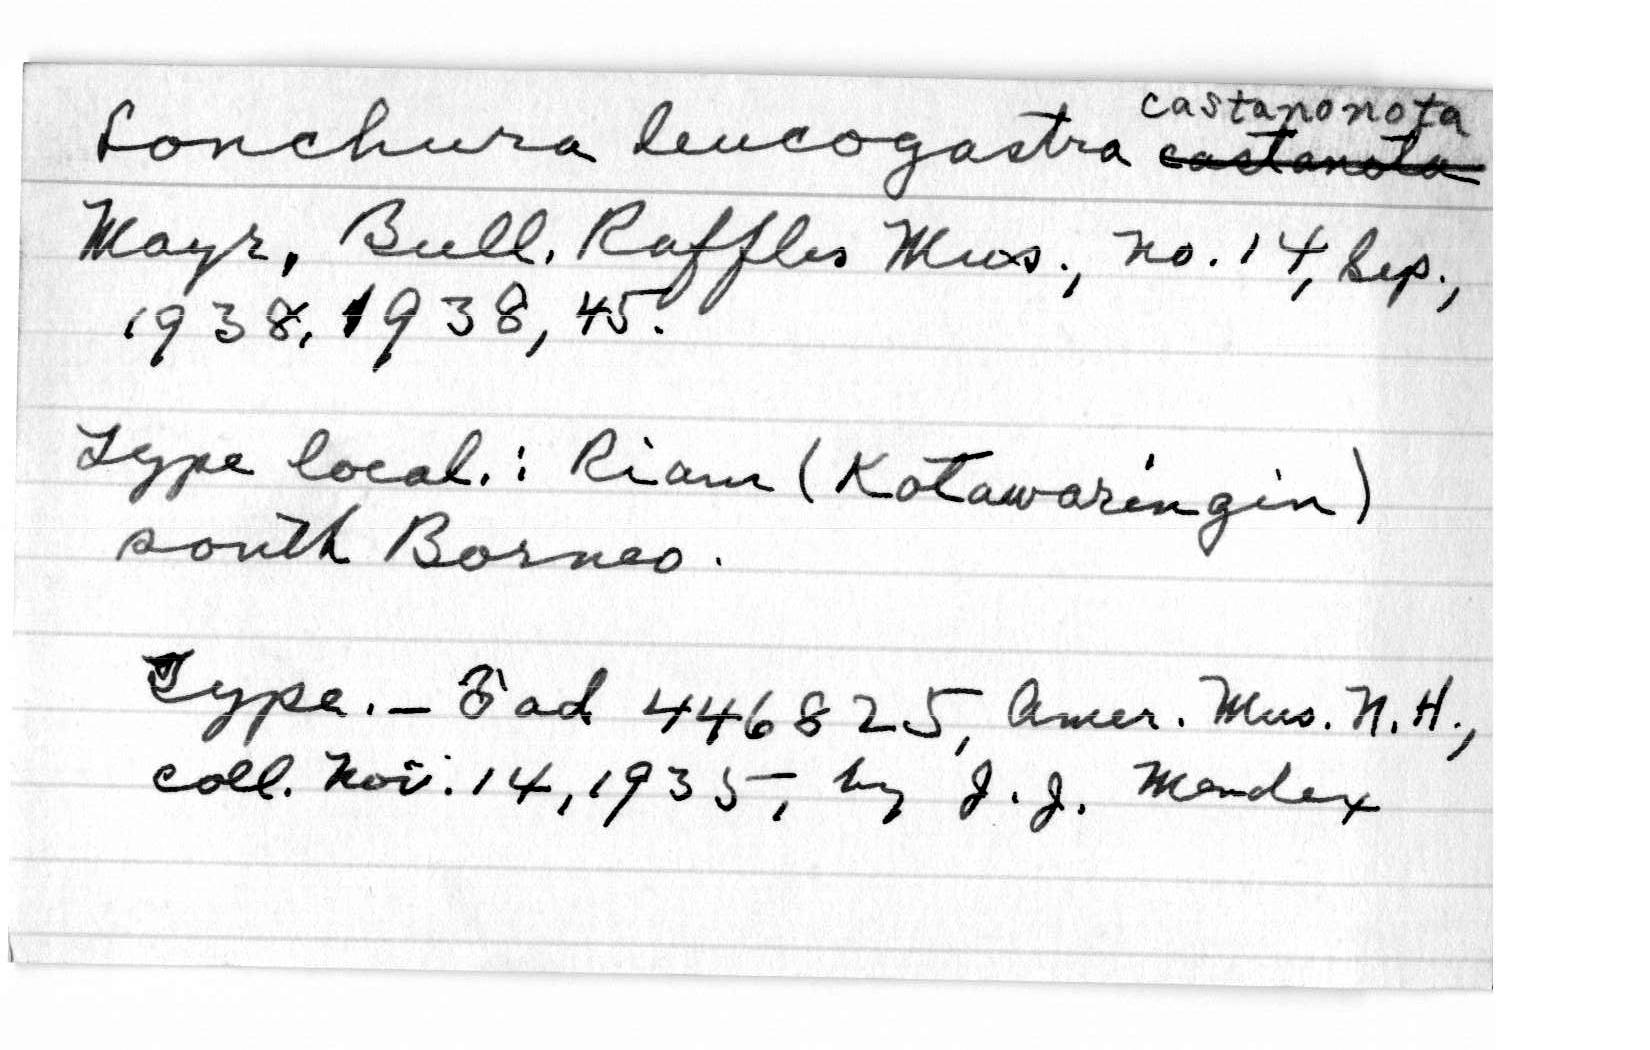 castanonota
Lonchura leucogastra castanota
Mayr, Bull. Raffles Mus., no. 14, Sep.,
1938, 1938, 45.
Type local.: Riam (Kotawaringin)
south Borneo.
Type. — ♂ ad 446825, Amer. Mus. N.H.,
coll. Nov. 14, 1935, by J. J. Mendex